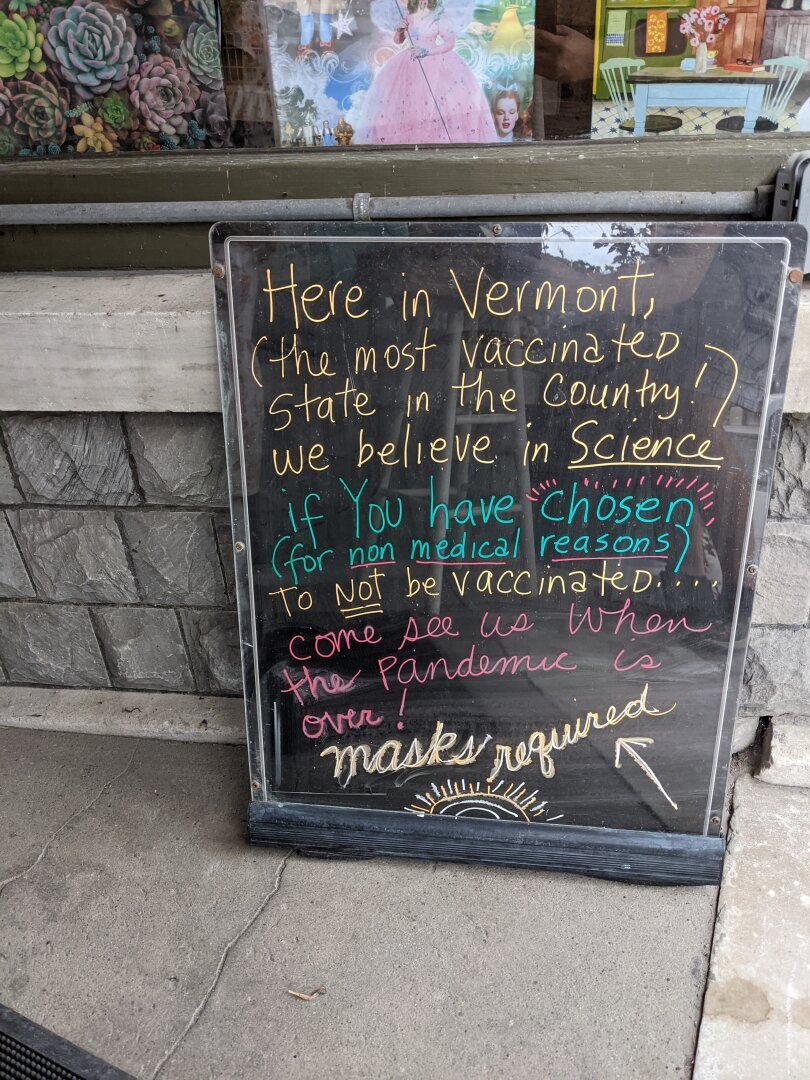 Here in Vermont,
(the most vaccinated
State in the Country!)
we believe in Science
if You have chosen
(for non medical reasons)
To NOT be vaccinated....
come see us when
the Pandemic is
over!
masks required